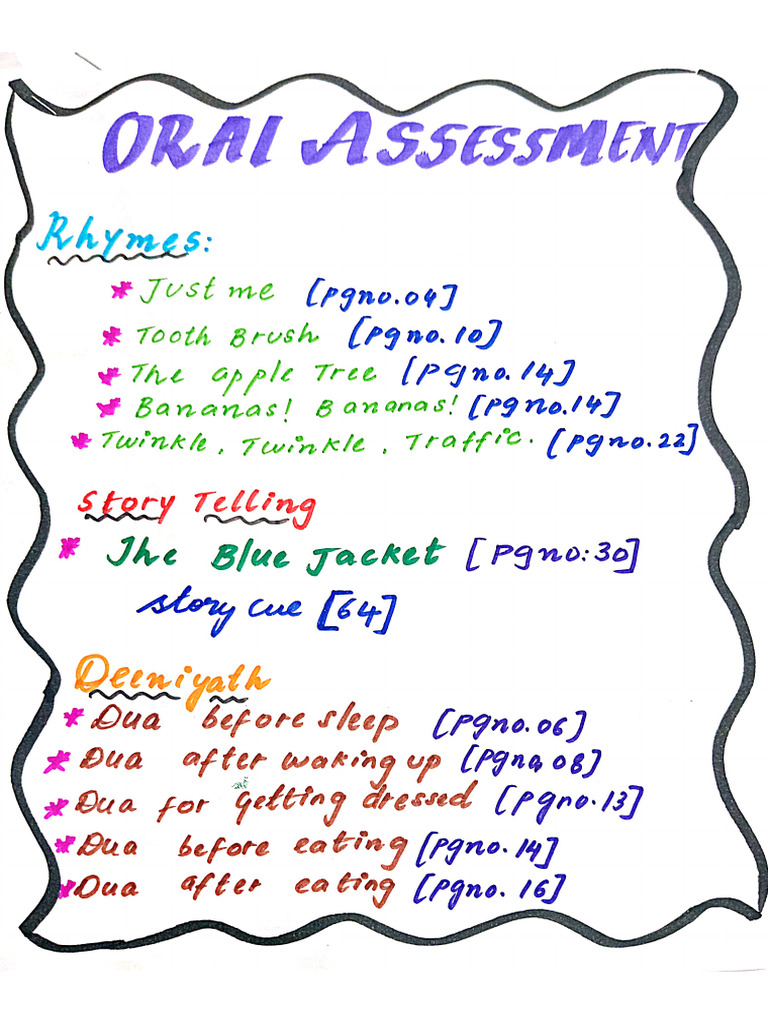 ORAL ASSESSMENT
Rhymes:
* Just me [pgno.04]
* Tooth Brush [pgno.10]
* The apple Tree [pgno.14]
* Bananas! Bananas! [pgno.14]
* Twinkle, Twinkle, Traffic. [pgno.22]
Story Telling
* The Blue Jacket [pgno:30]
story cue [64]
Deeniyath
* Dua before sleep [pgno.06]
* Dua after waking up [pgno.08]
* Dua for getting dressed [pgno.13]
* Dua before eating [pgno.14]
* Dua after eating [pgno.16]